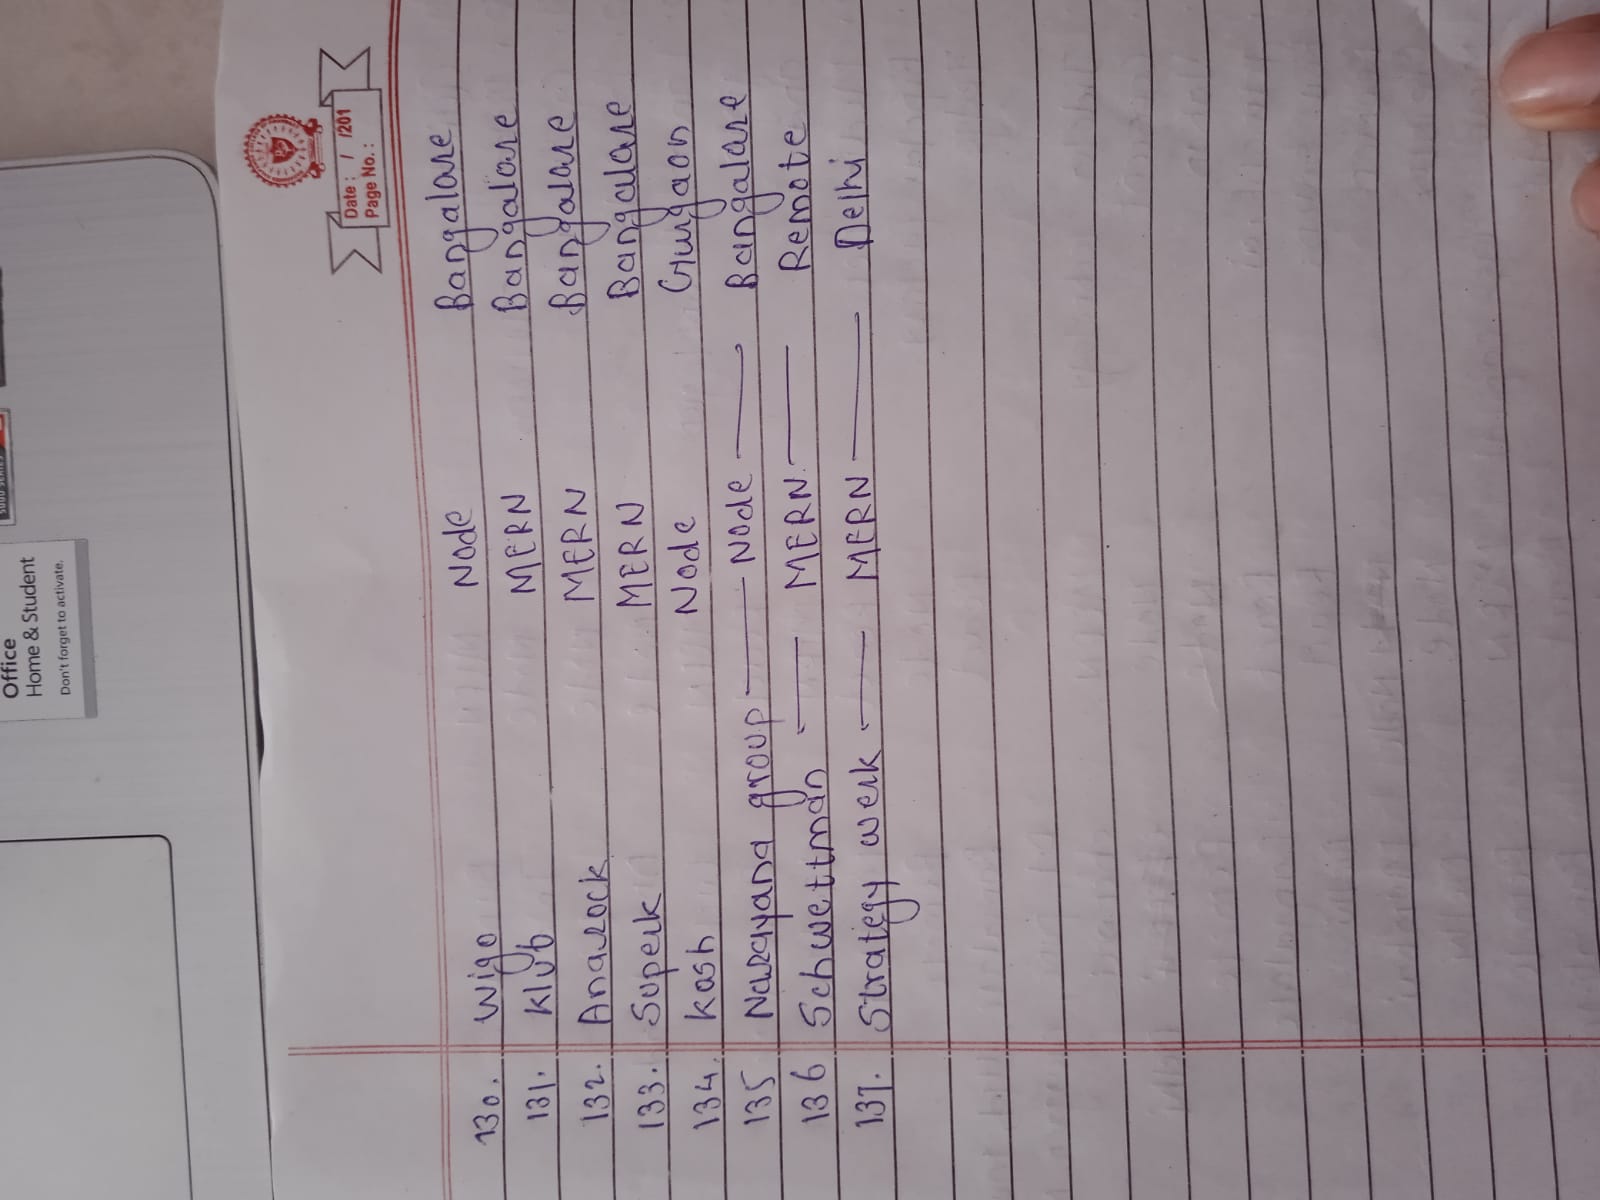 Office
Home & Student
Don't forget to activate.
Date : / /201
Page No. :
130. Wigo Node Bangalore
131. Klub MERN Bangalore
132. Anarock MERN Bangalore
133. Superk MERN Bangalore
134. Kosh Node Gurgaon
135 Narayana group — Node — Bangalore
136 Schwettman — MERN. — Remote
137. Strategy werk — MERN — Delhi